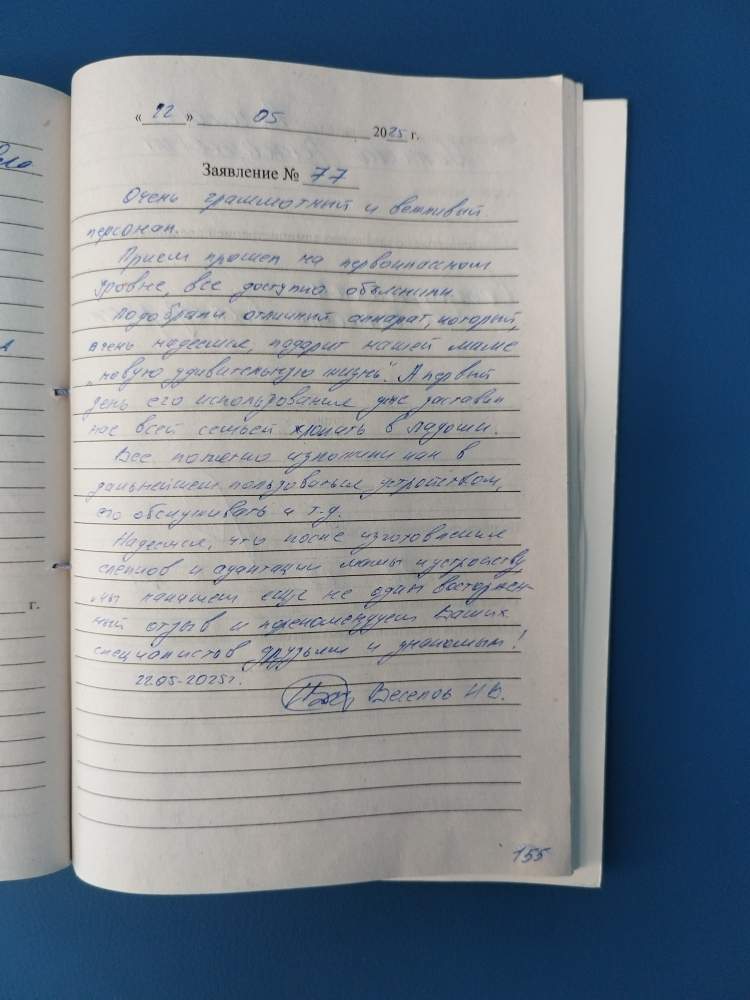 « 22 » 05 2025 г.
Заявление № 77
Очень грамотный и вежливый
персонал.
Прием прошел на первоклассном
уровне, все доступно объяснили.
Подобрали отличный аппарат, который,
очень надеемся, подарит нашей маме
"новую удивительную жизнь". А первый
день его использования уже заставил
нас всей семьей хлопать в ладоши.
Все понятно изложили как в
дальнейшем пользоваться устройством,
его обслуживать и т.д.
Надеемся, что после изготовления
слепков и адаптации мамы к устройству
мы напишем еще не один восторжен-
ный отзыв и порекомендуем Ваших
специалистов друзьям и знакомым!
22.05.2025г.
Веселов Н.В.
155
г.